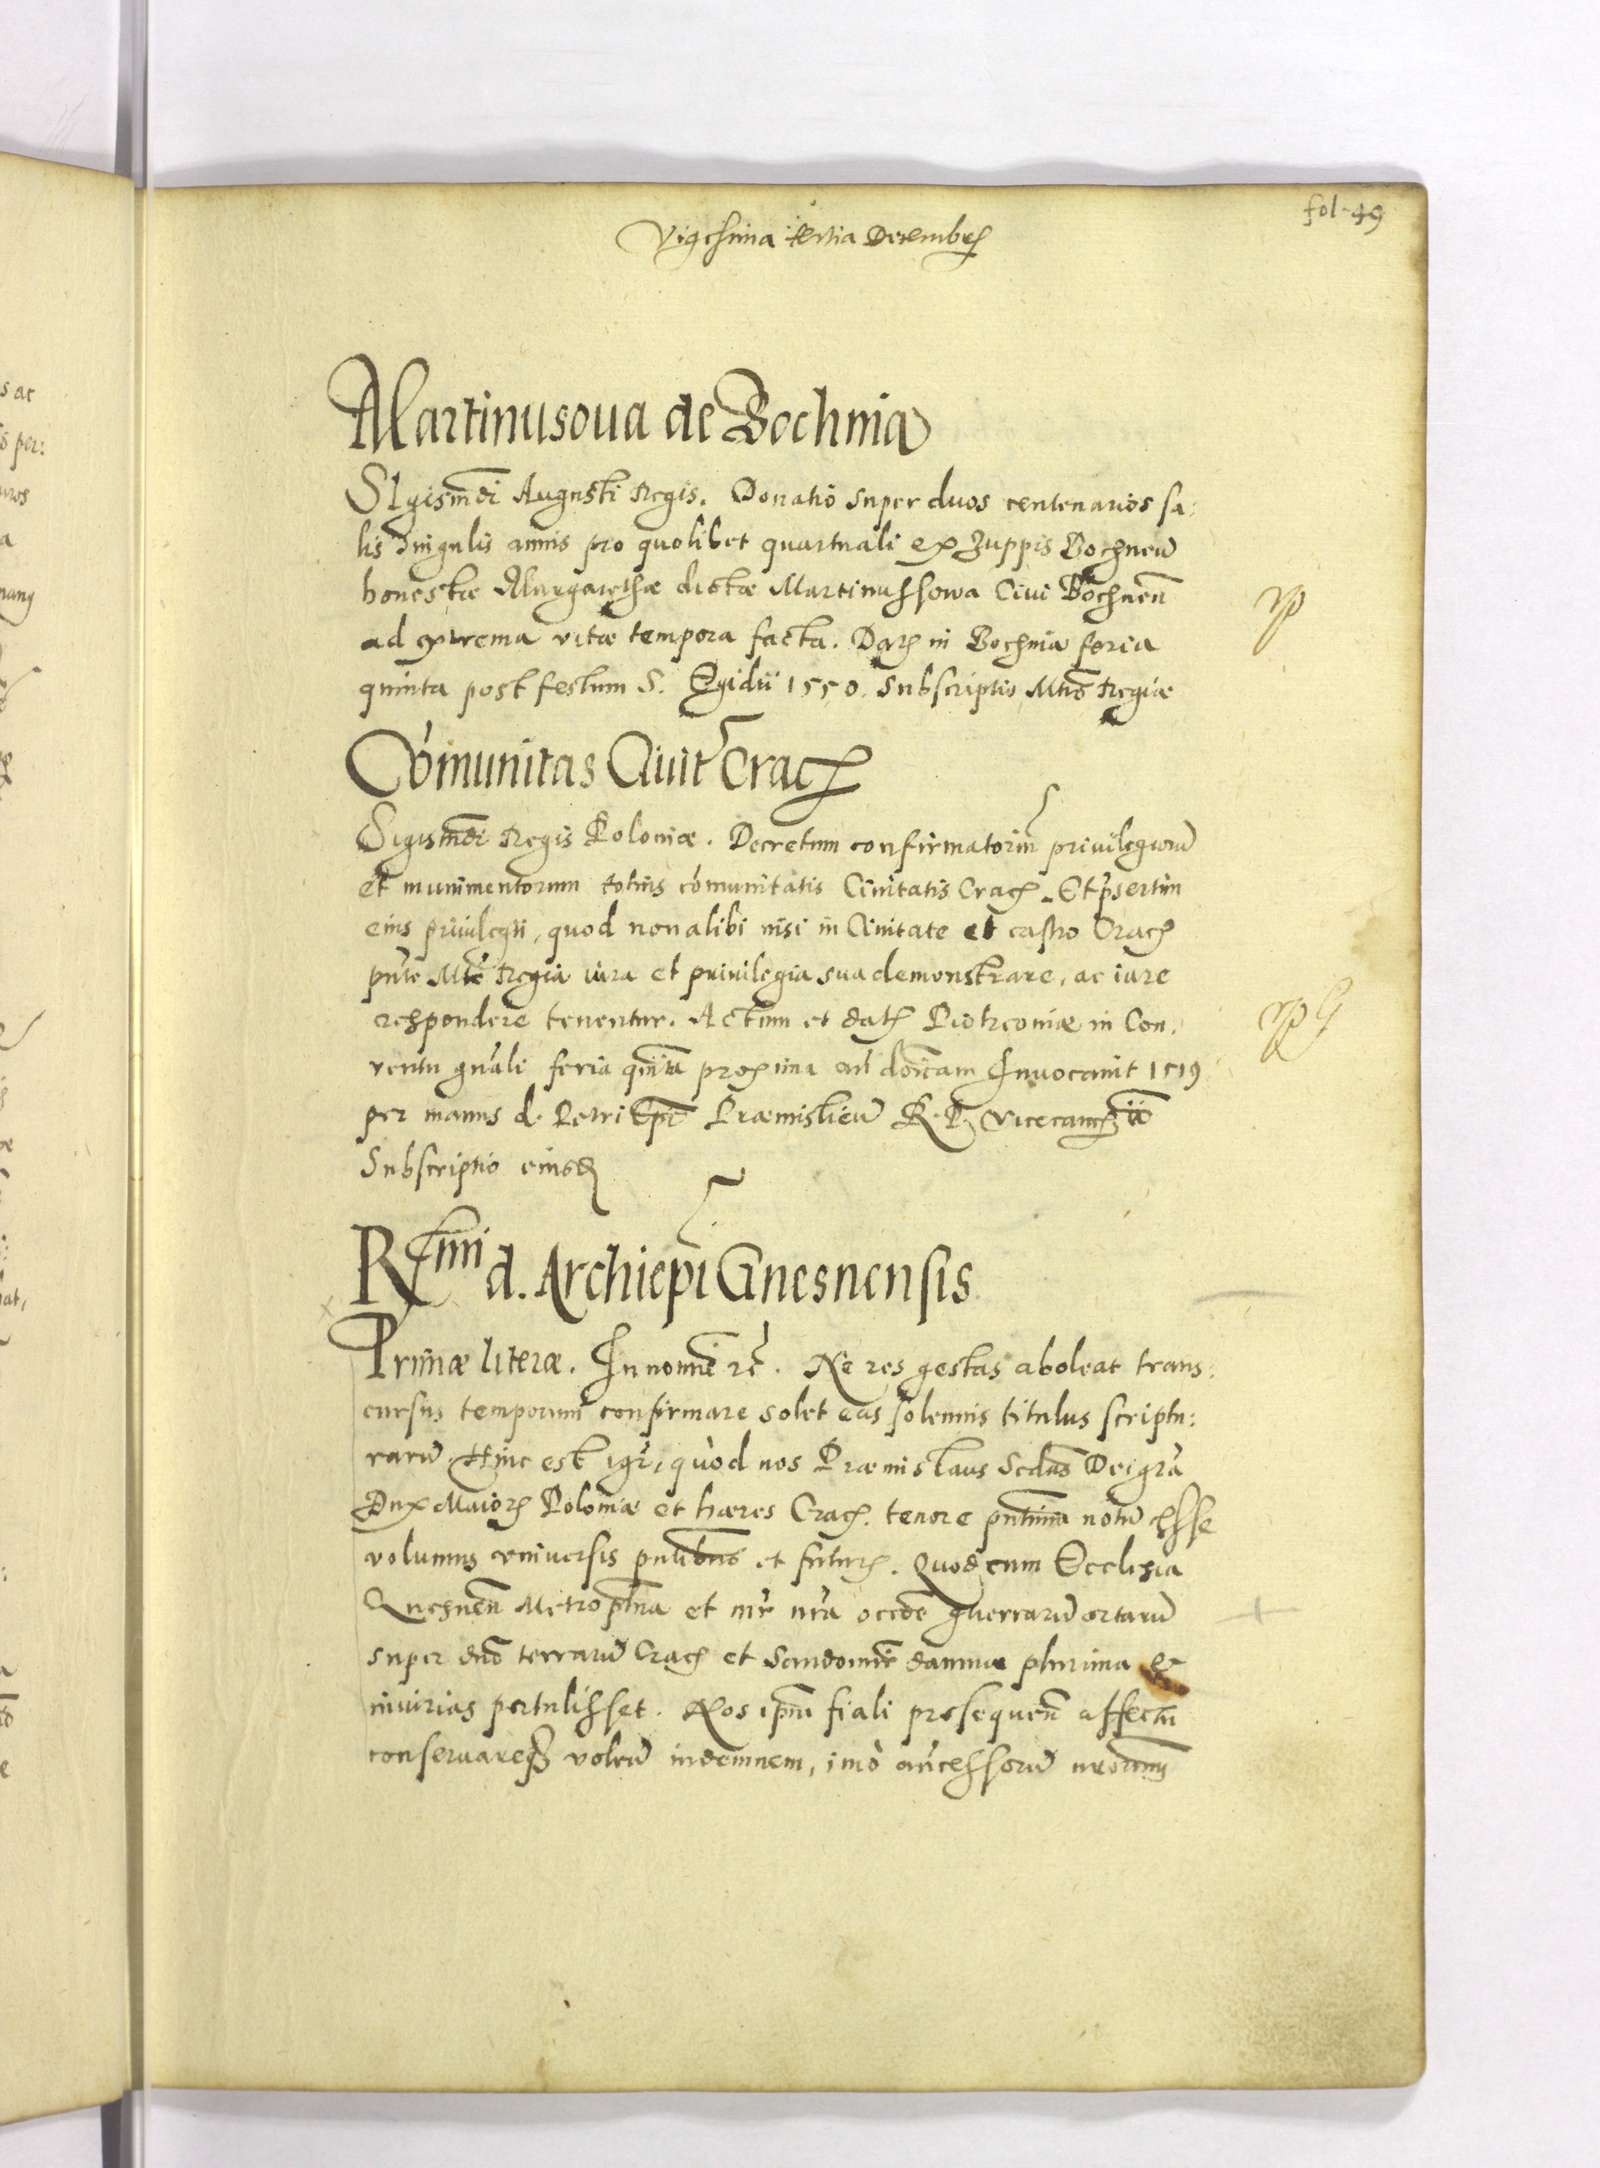 fol. 49
Vigesima tertia Decembr
Martinusoua de Bochnia
SIgismūdi Augusti Regis. Donatio super duos centenarios sa:
lis singulis annis pro quolibet quartuali ex Zuppis Bochneñ
honestæ Margarethæ dictæ Martinussowa Ciui Bochneñ
ad extrema vitæ tempora facta. Dat in Bochnia feria
quinta post festum S. Egidii 1550. Subscriptio Mtis Regiæ
Cōmunitas Ciuit Crac
Sigismūdi Regis Poloniæ. Decretum confirmatoriū priuilegiorū
et munimentorum totius cōmunitatis Ciuitatis Crac. Et psertim
eius priuilegii, quod non alibi nisi in Ciuitate et castro Crac
pnte Mte Regia iura et priuilegia sua demonstrare, ac iure
respondere tenentur. Actum et dat Piotrcouiæ in Con.
uentu gnali feria quinta proxima an dōicam Inuocauit 1519
per manus d. Petri Epi Præmislieñ R. P. Vicecanc
Subscriptio eiusd
Rmi d. Archiepi Gnesnensis
Primæ literæ. In nomine rc. Ne res gestas aboleat trans:
cursus temporum confirmare solet eas solennis titulus scriptu:
rarū. Hinc est igr, quod nos Præmislaus Scdus Dei gra
Dux Maior Poloniæ et hæres Crac. tenore pntium notū esse
volumus vniuersis pntibus et futur. Quod cum Ecclesia
Gnesneñ Metropltna et nr nra occōe guerrarū ortarū
super dno terrarū Crac et Sandomir damna plurima et
iniurias pertulisset. Nos ipm fiali prosequeñ affectu
conseruareq voleñ indemnem, imò ancessorū nrorum